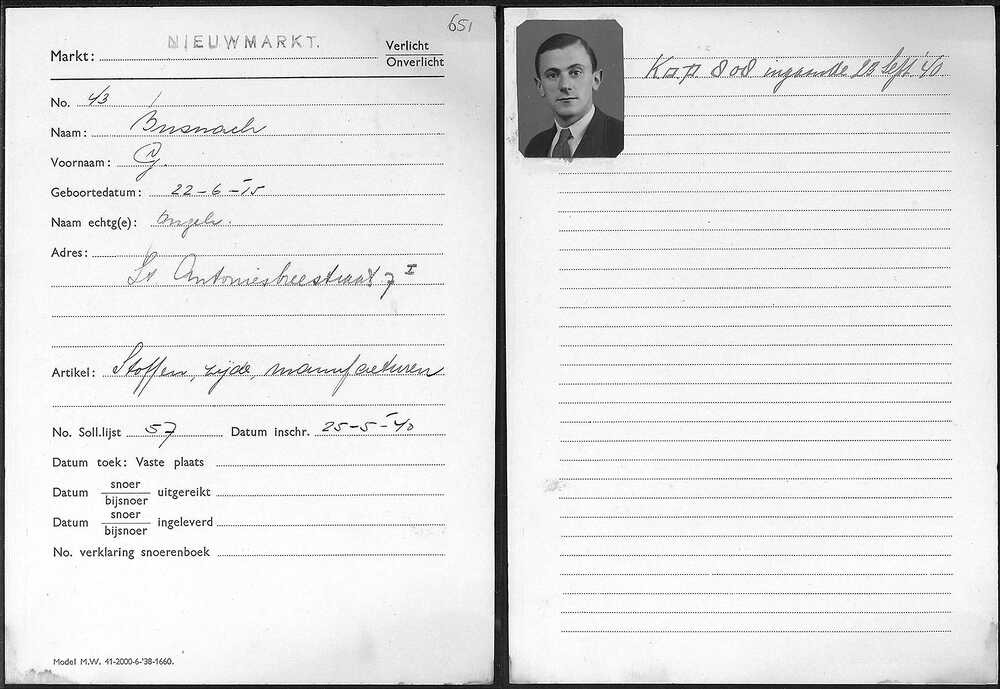 651
NIEUWMARKT.
Markt:
Verlicht
Onverlicht
No. 43
Naam: Busnach
Voornaam: G.
Geboortedatum: 22-6-'15
Naam echtg(e): Engels.
Adres:
St. Antoniesbreestraat 7 I
Artikel: Stoffen, zijde, manufacturen
No. Soll.lijst 57 Datum inschr. 25-5-'40
Datum toek: Vaste plaats
Datum snoer
bijsnoer uitgereikt
Datum snoer
bijsnoer ingeleverd
No. verklaring snoerenboek
Model M.W. 41-2000-6-'38-1660.
808 ingaande 23 Sept '40